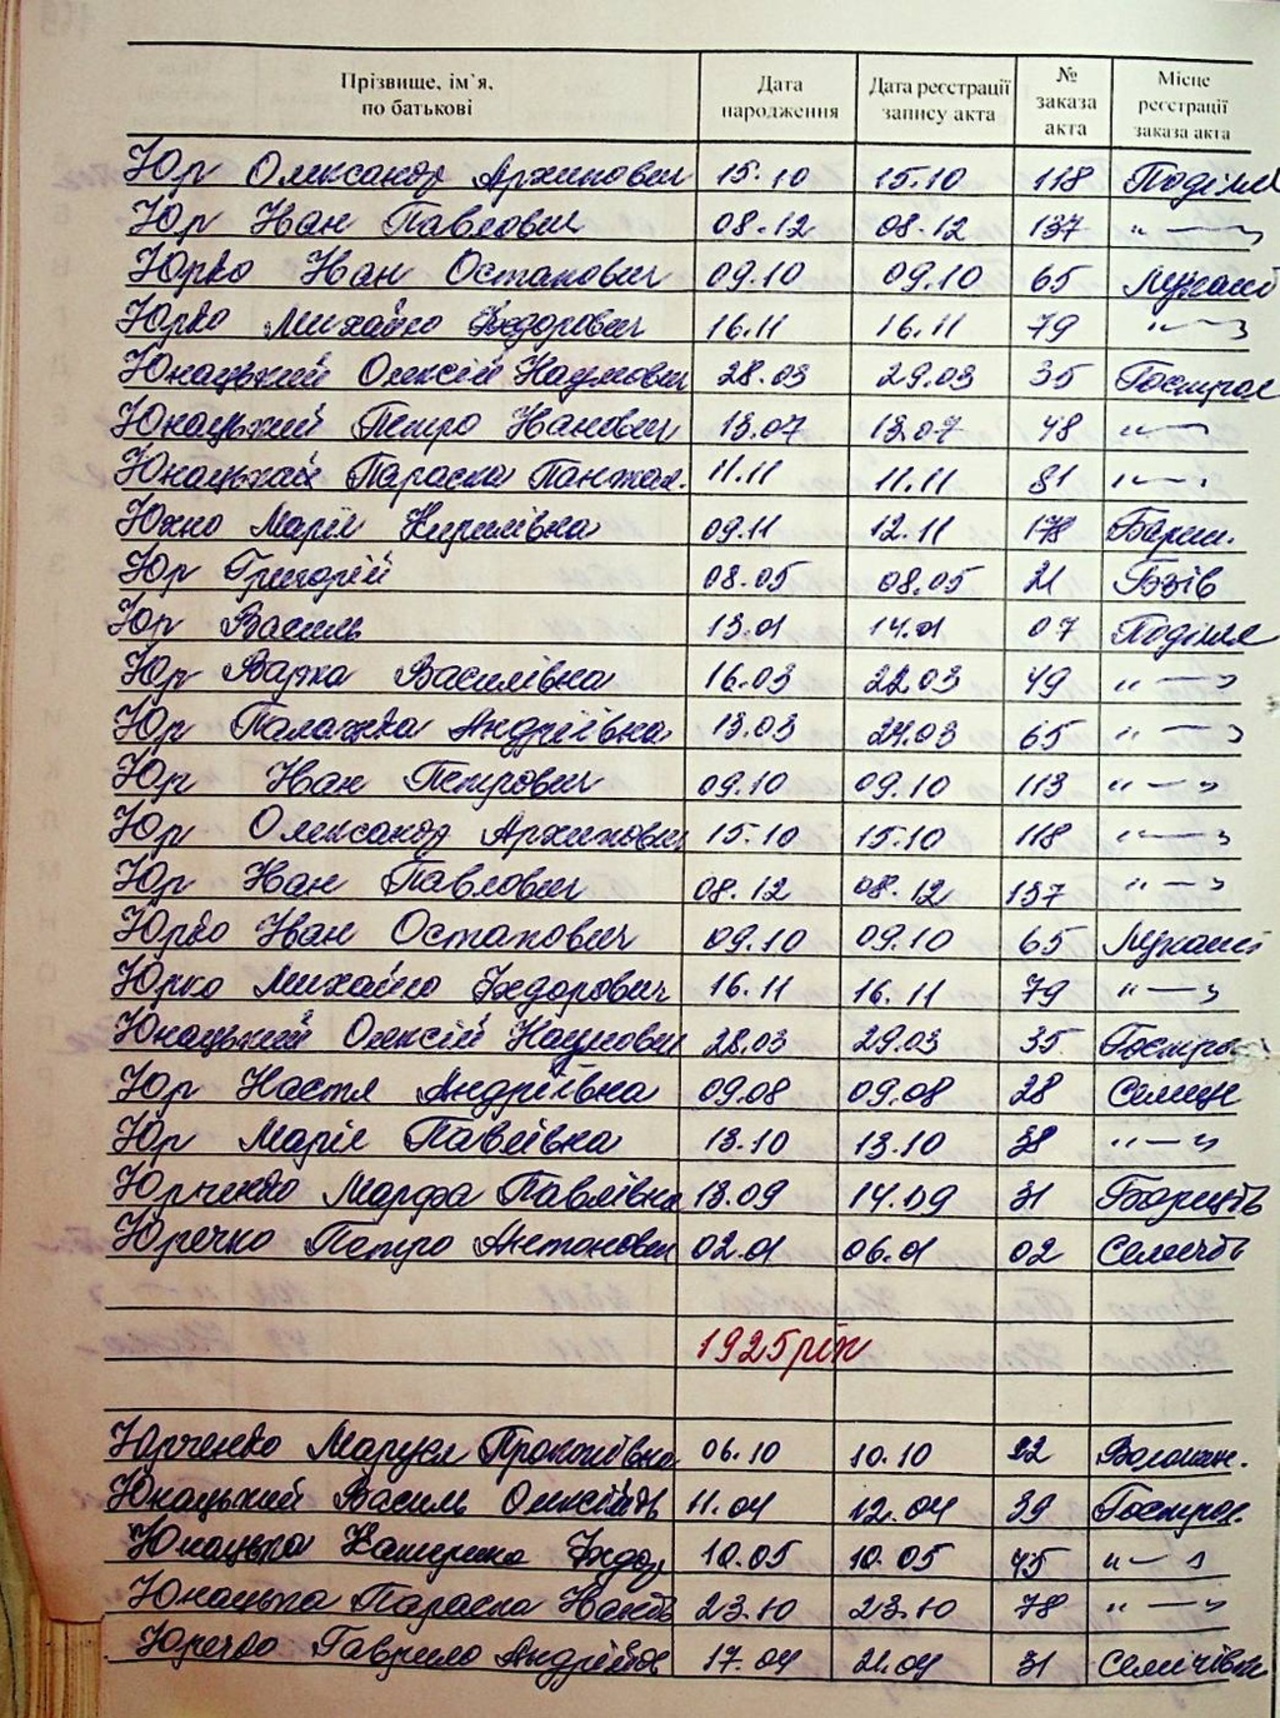 Прізвище, ім`я, по батькові Дата народження Дата реєстрації запису акта № заказа акта Місце реєстрації заказа акта
Юр Олександр Архипович 15.10 15.10 118 Поділля
Юр Іван Павлович 08.12 08.12 137 "—"
Юрко Іван Остапович 09.10 09.10 65
Юрко Михайло Федорович 16.11 16.11 79 "—"
Юнацький Олексій Наумович 28.03 29.03 35 Гострол
Юнацький Петро Іванович 13.07 13.07 48 "—"
Юнацький Параска Пантел. 11.11 11.11 81 "—"
Юхно Марія Кирилівна 09.11 12.11 178 Бариш.
Юр Григорій 08.05 08.05 21 Бзів
Юр Василь 13.01 14.01 07 Поділля
Юр Варка Василівна 16.03 22.03 49 "—"
Юр Палажка Андріївна 13.03 24.03 65 "—"
Юр Іван Петрович 09.10 09.10 113 "—"
Юр Олександр Архипович 15.10 15.10 118 "—"
Юр Іван Павлович 08.12 08.12 137 "—"
Юрко Іван Остапович 09.10 09.10 65
Юрко Михайло Федорович 16.11 16.11 79 "—"
Юнацький Олексій Наумович 28.03 29.03 35 Гострол
Юр Настя Андріївна 09.08 09.08 28 Селище
Юр Марія Павлівна 13.10 13.10 38 "—"
Юрченко Марфа Павлівна 13.09 14.09 31
Юречко Петро Антонович 02.01 06.01 02
1925 рік
Юрченко Маруся Прокопівна 06.10 10.10 22
Юнацький Василь Олексійов 11.04 12.04 39 Гострол.
Юнацька Катерина Федор 10.05 10.05 45 "—"
Юнацька Параска 23.10 23.10 78 "—"
Юречко Гаврило Андрійов 17.04 21.04 31 Селичівка